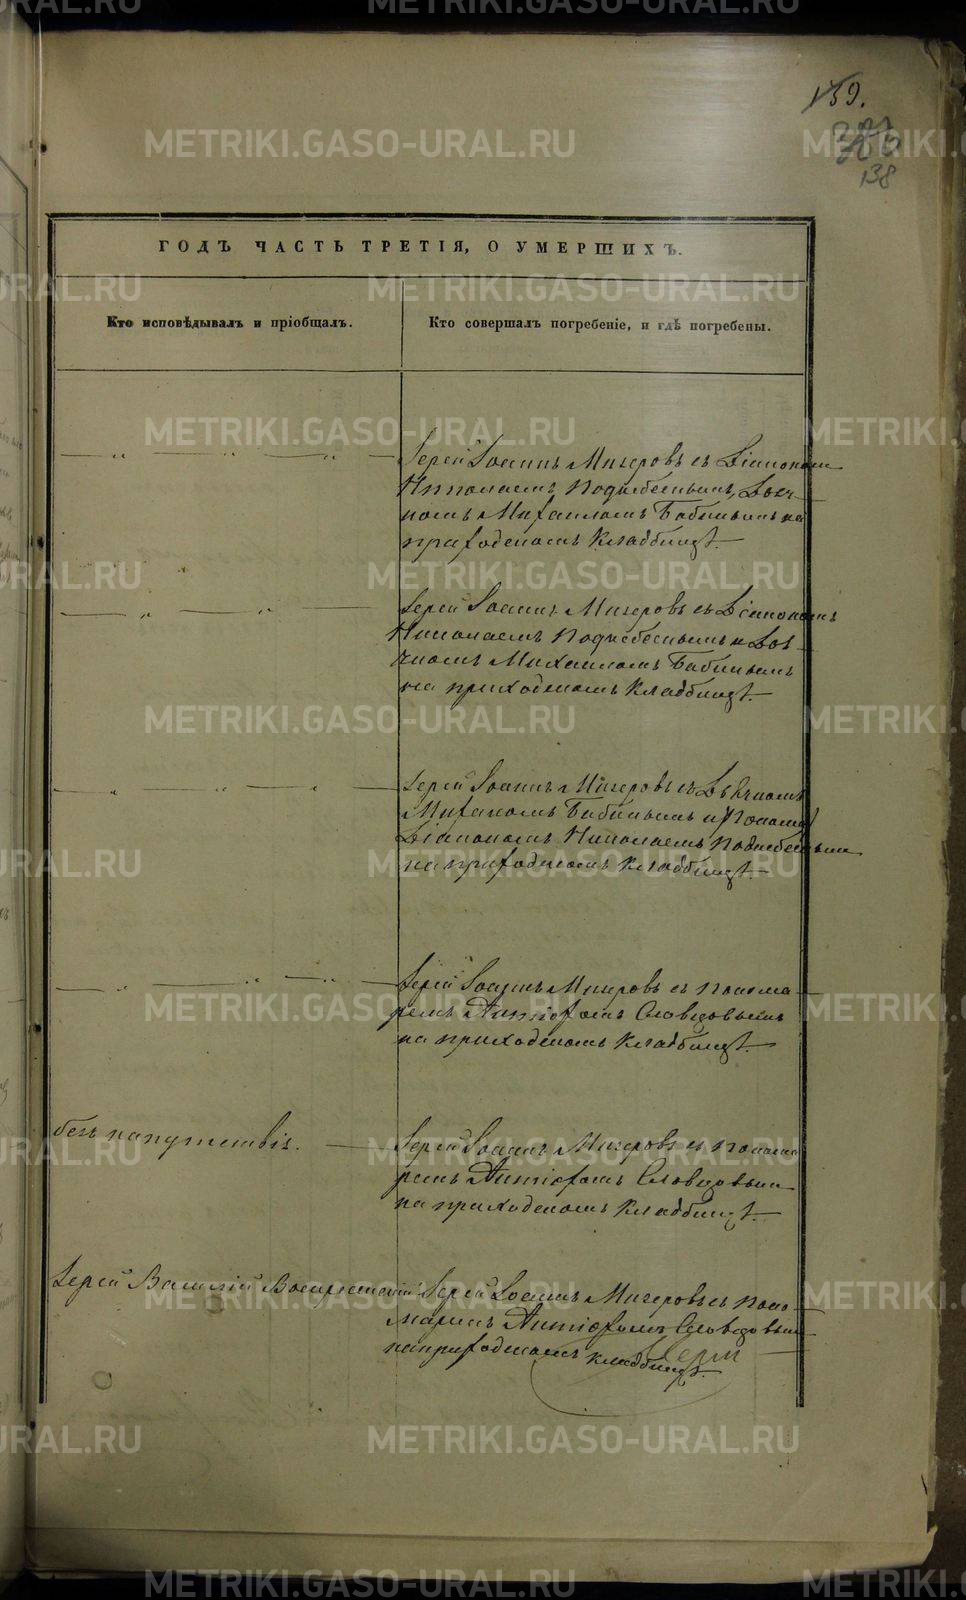 139.
138
ГОДЪ ЧАСТЬ ТРЕТІЯ, О УМЕРШИХЪ.
Кто исповѣдывалъ и пріобщалъ.
Кто совершалъ погребеніе, и гдѣ погребены.
— „ — „ — „ —
Іерей Іоаннъ Мигеровъ съ Діакономъ
Николаемъ Поднебеснымъ, Дьяч-
комъ Михаиломъ Бабинымъ на
приходскомъ кладбищѣ.
— „ — „ — „ —
Іерей Іоаннъ Мигеровъ съ Діакономъ
Николаемъ Поднебеснымъ и Дья-
чкомъ Михаиломъ Бабинымъ
на приходскомъ кладбищѣ.
— „ — „ — „ —
Іерей Іоаннъ Мигеровъ съ Дьячкомъ
Михаиломъ Бабинымъ и
Діакономъ Николаемъ Поднебеснымъ
на приходскомъ кладбищѣ.
— „ — „ — „ —
Іерей Іоаннъ Мигеровъ съ понома-
ремъ Антіохомъ Словцовымъ
на приходскомъ кладбищѣ.
безъ напутствія.
Іерей Іоаннъ Мигеровъ съ понома
ремъ Антіохомъ Словцовымъ
на приходскомъ кладбищѣ.
Іерей Василій Воскресенскій
Іерей Іоаннъ Мигеровъ съ поно
маремъ Антіохомъ Словцовымъ
на приходскомъ кладбищѣ.
METRIKI.GASO-URAL.RU